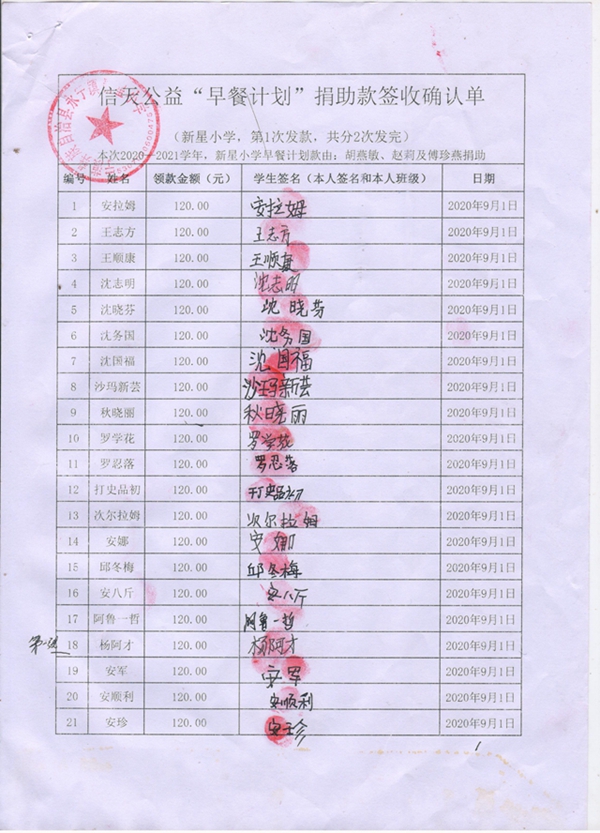 信天公益“早餐计划”捐助款签收确认单
（新星小学，第1次发款，共分2次发完）
本次2020—2021学年，新星小学早餐计划款由：胡燕敏、赵莉及傅珍燕捐助
编号 姓名 领款金额（元） 学生签名（本人签名和本人班级） 日期
1 安拉姆 120.00 安拉姆 2020年9月1日
2 王志方 120.00 王志方 2020年9月1日
3 王顺康 120.00 王顺康 2020年9月1日
4 沈志明 120.00 沈志明 2020年9月1日
5 沈晓芬 120.00 沈晓芬 2020年9月1日
6 沈务国 120.00 沈务国 2020年9月1日
7 沈国福 120.00 沈国福 2020年9月1日
8 沙玛新芸 120.00 沙玛新芸 2020年9月1日
9 秋晓丽 120.00 秋晓丽 2020年9月1日
10 罗学花 120.00 罗学花 2020年9月1日
11 罗忍落 120.00 罗忍落 2020年9月1日
12 打史品初 120.00 打史品初 2020年9月1日
13 次尔拉姆 120.00 次尔拉姆 2020年9月1日
14 安娜 120.00 安娜 2020年9月1日
15 邱冬梅 120.00 邱冬梅 2020年9月1日
16 安八斤 120.00 安八斤 2020年9月1日
17 阿鲁一哲 120.00 阿鲁一哲 2020年9月1日
18 杨阿才 120.00 杨阿才 2020年9月1日
19 安军 120.00 安军 2020年9月1日
20 安顺利 120.00 安顺利 2020年9月1日
21 安珍 120.00 安珍 2020年9月1日
1